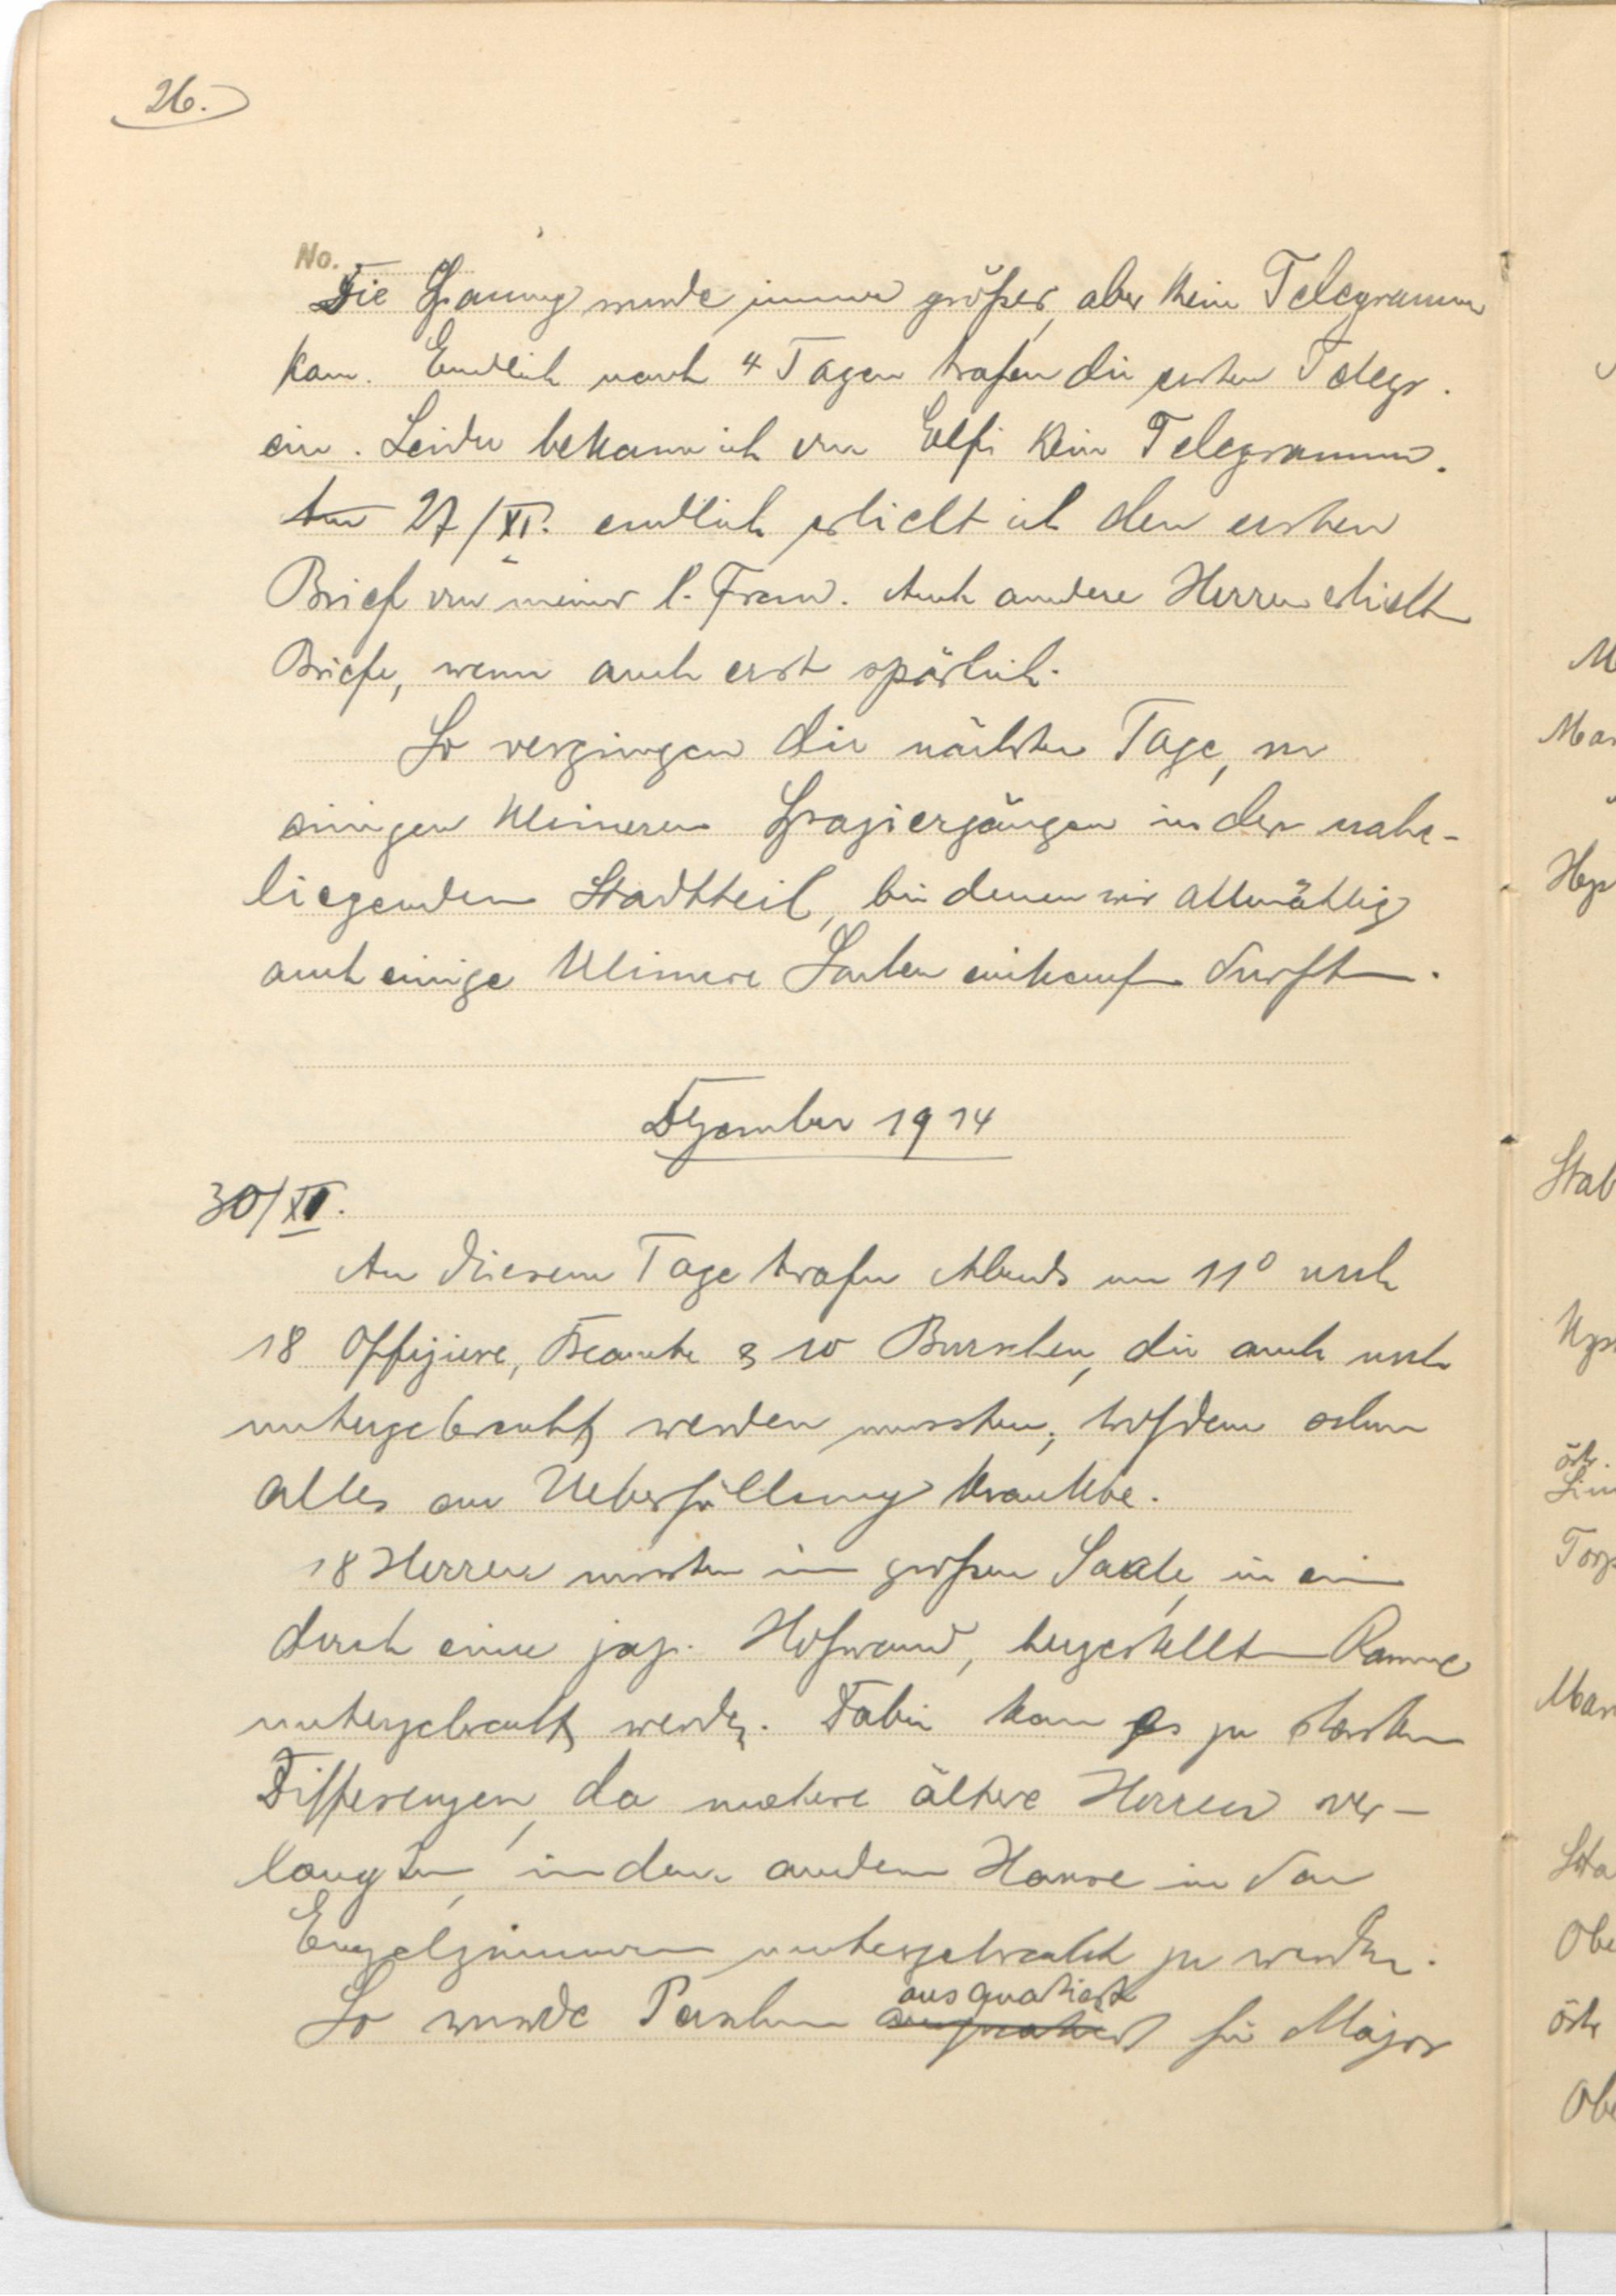 26.
No.
Die Spannung wurde immer größer, aber kein Telegramm
kam. Endlich nach 4 Tagen trafen die ersten Telegr.
ein. Leider bekam ich von Elfi kein Telegramm.
Am 27/XI. endlich erhielt ich den ersten
Brief von meiner l. Frau. Auch andere Herren erhielten
Briefe, wenn auch erst spärlich.
So vergingen die nächsten Tage, mit
einigen kleineren Spaziergängen in den nahe-
liegenden Stadtteil, bei denen wir allmählig
auch einige kleinere Sachen einkaufen durften.
Dezember 1914
30/XI.
An diesem Tage trafen Abends um 11⁰ noch
18 Offiziere, Beamte & 10 Burschen, die auch noch
untergebracht werden mussten, trotzdem schon
alles an Ueberfüllung krankte.
18 Herren mussten im großen Saale, in ein
durch eine jap. Holzwand, hergestellten Raume
untergebracht werden. Dabei kam es zu starken
Differenzen, da mehere ältere Herren ver-
langten, in dem andern Hause in den
Einzelzimmern untergebracht zu werden.
ausquartiert
So wurde für Major
M
Mar
Stab
östr.
Mar
Sta
Obe
östr
Obe